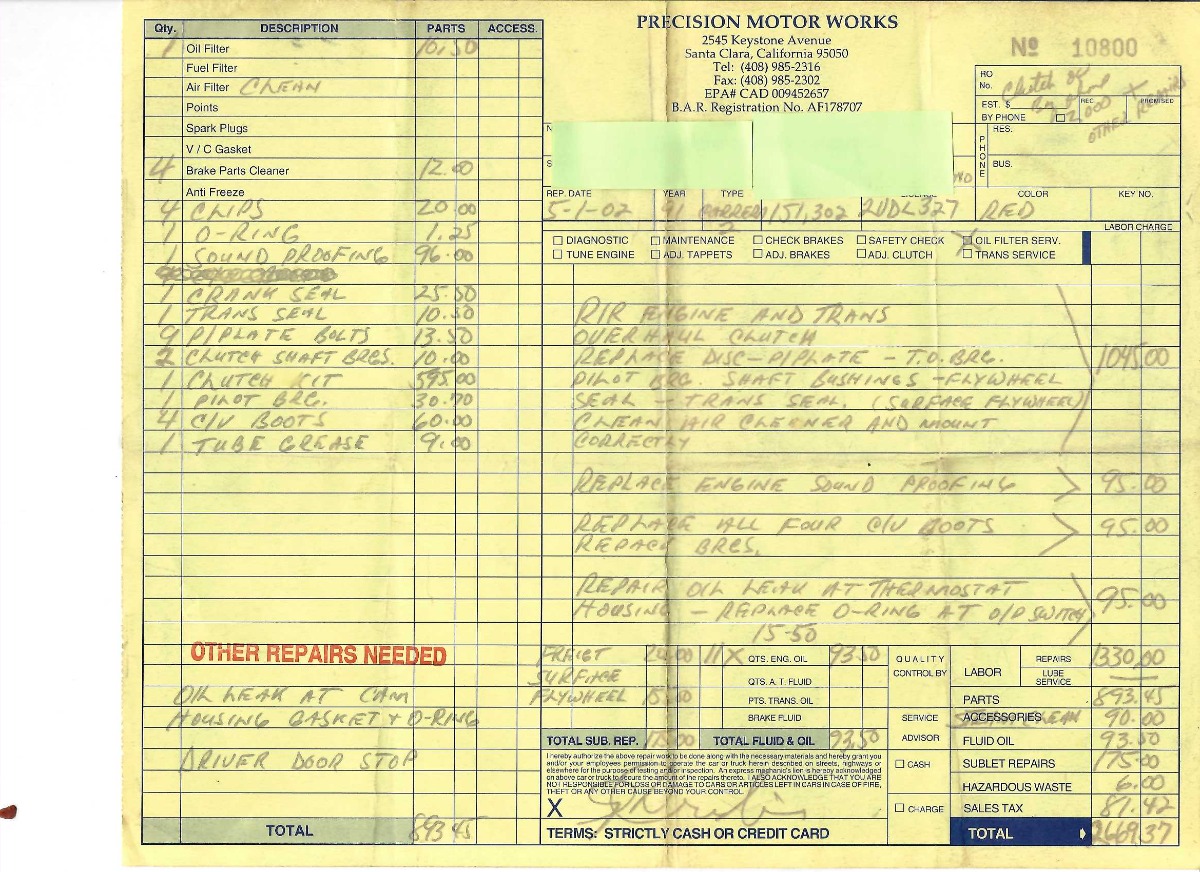 PRECISION MOTOR WORKS
2545 Keystone Avenue
Santa Clara, California 95050
Tel: (408) 985-2316
Fax: (408) 985-2302
EPA# CAD 009452657
B.A.R. Registration No. AF178707
Nº 10800
RO No. Clutch
EST. $ REC. PROMISED
BY PHONE 2,000 + OTHER REPAIRS
PHONE
RES.
BUS.
REP. DATE YEAR TYPE COLOR KEY NO.
5-1-02 91 CARRERA 2 151,302 2UDL327 RED
LABOR CHARGE
DIAGNOSTIC MAINTENANCE CHECK BRAKES SAFETY CHECK X OIL FILTER SERV.
TUNE ENGINE ADJ. TAPPETS ADJ. BRAKES ADJ. CLUTCH TRANS SERVICE
Qty. DESCRIPTION PARTS ACCESS.
1 Oil Filter 10.50
Fuel Filter
Air Filter CLEAN
Points
Spark Plugs
V / C Gasket
4 Brake Parts Cleaner 12.00
Anti Freeze
4 CLIPS 20.00
1 O-RING 1.25
1 SOUND PROOFING 96.00
1 CRANK SEAL 25.50
1 TRANS SEAL 10.50
9 P/PLATE BOLTS 13.50
2 CLUTCH SHAFT BRGS. 10.00
1 CLUTCH KIT 595.00
1 PILOT BRG. 30.70
4 C/V BOOTS 60.00
1 TUBE GREASE 9.00
R/R ENGINE AND TRANS
OVERHAUL CLUTCH
REPLACE DISC-P/PLATE - T.O. BRG. 1045.00
PILOT BRG. SHAFT BUSHINGS - FLYWHEEL
SEAL - TRANS SEAL. (SURFACE FLYWHEEL)
CLEAN AIR CLEANER AND MOUNT
CORRECTLY
REPLACE ENGINE SOUND PROOFING 95.00
REPLACE ALL FOUR C/V BOOTS 95.00
REPACK BRGS.
REPAIR OIL LEAK AT THERMOSTAT
HOUSING - REPLACE O-RING AT O/P SWITCH 95.00
15-50
OTHER REPAIRS NEEDED
OIL LEAK AT CAM
HOUSING GASKET + O-RING
DRIVER DOOR STOP
TOTAL 893.45
SURFACE
FLYWHEEL
TOTAL SUB. REP. 175.00
11 X QTS. ENG. OIL 93.50
QTS. A. T. FLUID
PTS. TRANS. OIL
BRAKE FLUID
TOTAL FLUID & OIL 93.50
I hereby authorize the above repair work to be done along with the necessary materials and hereby grant you
and/or your employees permission to operate the car or truck herein described on streets, highways or
elsewhere for the purpose of testing and/or inspection. An express mechanic's lien is hereby acknowledged
on above car or truck to secure the amount of the repairs thereto. I ALSO ACKNOWLEDGE THAT YOU ARE
NOT RESPONSIBLE FOR LOSS OR DAMAGE TO CARS OR ARTICLES LEFT IN CARS IN CASE OF FIRE,
THEFT OR ANY OTHER CAUSE BEYOND YOUR CONTROL.
X
TERMS: STRICTLY CASH OR CREDIT CARD
QUALITY CONTROL BY
SERVICE ADVISOR
CASH
CHARGE
LABOR REPAIRS 1330.00
LUBE SERVICE
PARTS 893.45
ACCESSORIES STEAM CLEAN 90.00
FLUID OIL 93.50
SUBLET REPAIRS 175.00
HAZARDOUS WASTE 6.00
SALES TAX 81.42
TOTAL 2669.37